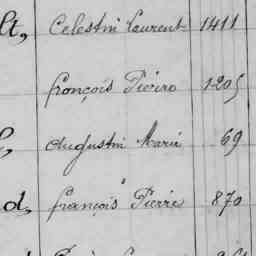 lt, Celestin Laurent 1411
François Pierre 1205
l, Augustin Marie 69
d, François Pierre 870